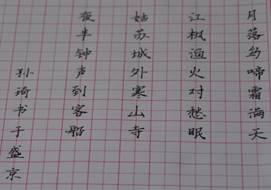 月落乌啼霜满天
江枫渔火对愁眠
姑苏城外寒山寺
夜半钟声到客船
孙琦书于盛京